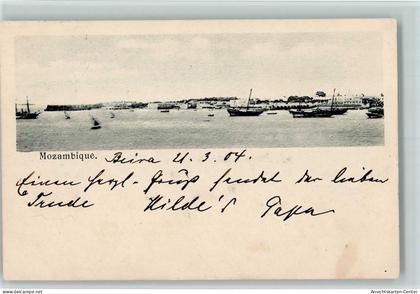 Mozambique. Beira 21. 3. 04.
Einen herzl. Gruß sendet der lieben
Trude Hilde's Papa
Ansichtskarten-Center